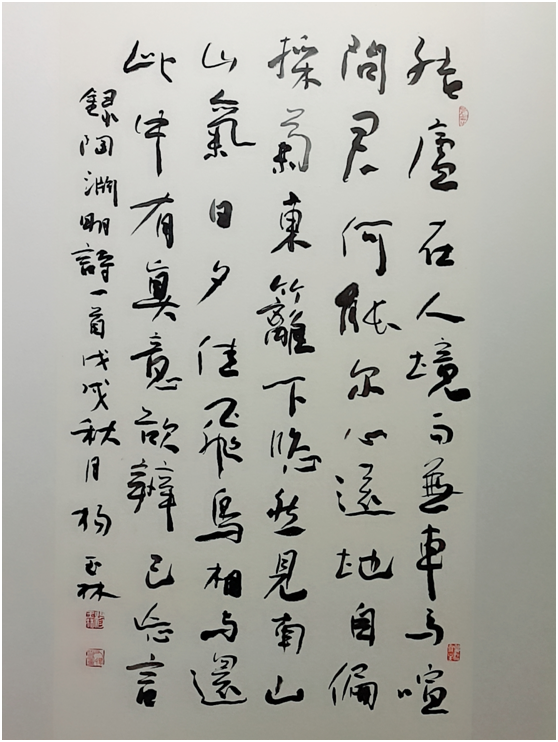 结廬在人境而無車馬喧
問君何能尔心遠地自偏
採菊東籬下隐然見南山
山氣日夕佳飛鳥相与還
此中有真意欲辨已忘言
録陶淵明詩一首戊戌秋月杨玉林